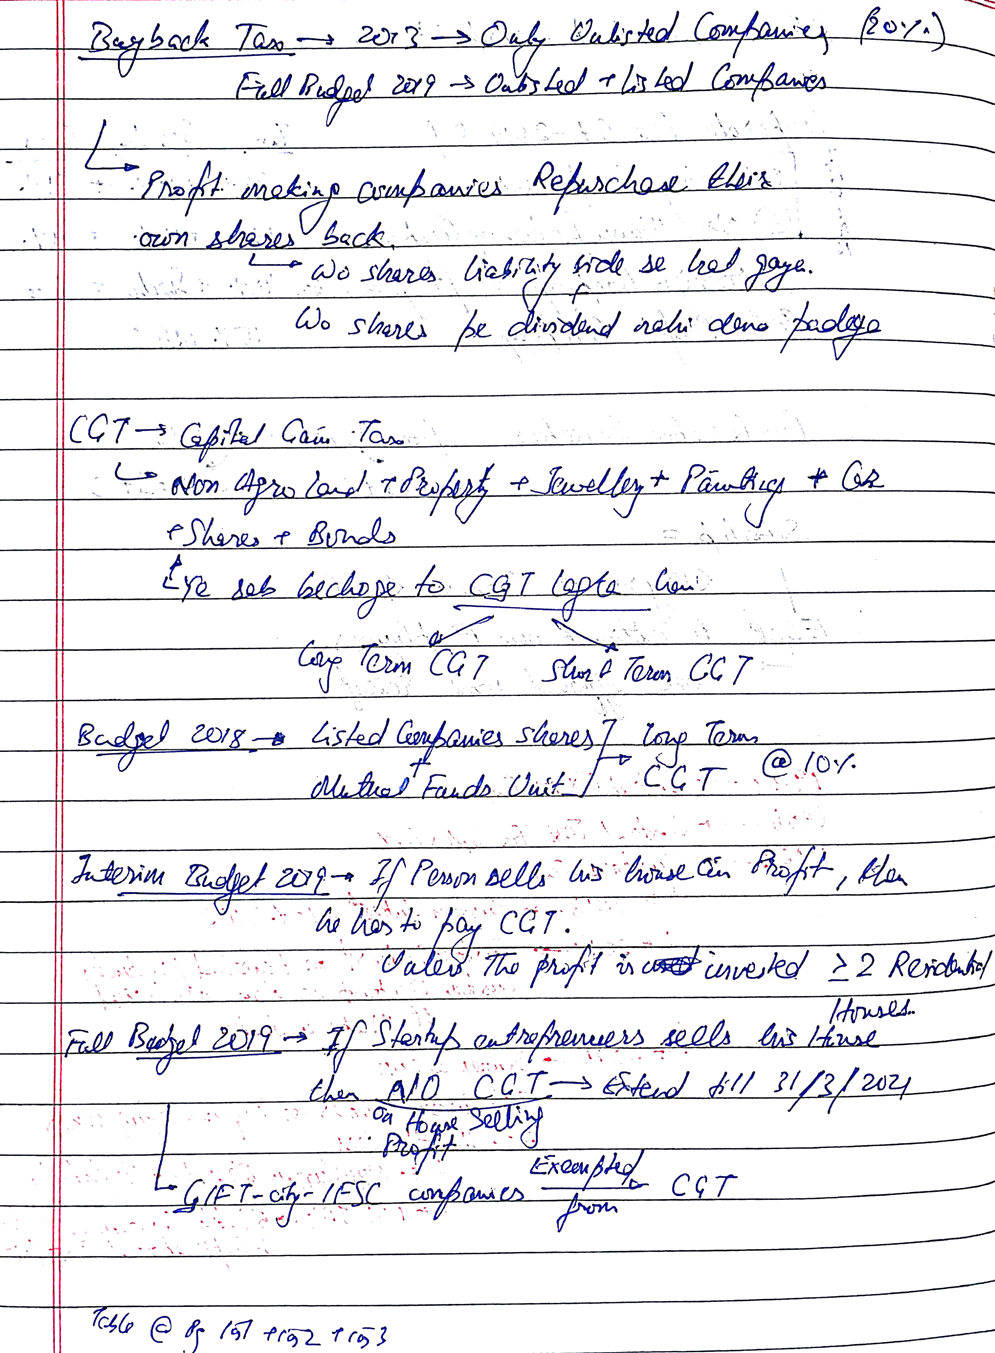 Buyback Tax → 2013 → Only Unlisted Companies (20%)
Full Budget 2019 → Unlisted + Listed Companies
Profit making companies Repurchase their
own shares back.
Wo shares liability side se hat gaye.
Wo shares pe dividend nahi dena padega
CGT → Capital Gain Tax
Non Agro land + Property + Jewellery + Paintings + Car
+ Shares + Bonds
Ye sab bechoge to CGT lagta hai
Long Term CGT Short Term CGT
Budget 2018 → Listed Companies shares Long Term
+
Mutual Funds Unit CGT @ 10%
Interim Budget 2019 → If Person sells his house in Profit, then
he has to pay CGT.
Unless The profit is invested ≥ 2 Residential
Houses.
Full Budget 2019 → If Startup entrepreneuers sells his House
then NO CGT → Extend till 31/3/2021
on House Selling
Profit
GIFT-city-IFSC companies Exempted from CGT
Table @ Pg 191 + 192 + 193